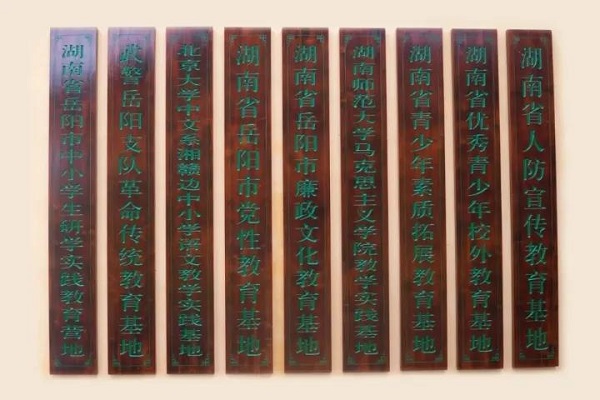 湖南省岳阳市中小学生研学实践教育营地
武警岳阳支队革命传统教育基地
北京大学中文系湘赣边中小学语文教学实践基地
湖南省岳阳市党性教育基地
湖南省岳阳市廉政文化教育基地
湖南师范大学马克思主义学院教学实践基地
湖南省青少年素质拓展教育基地
湖南省优秀青少年校外教育基地
湖南省人防宣传教育基地